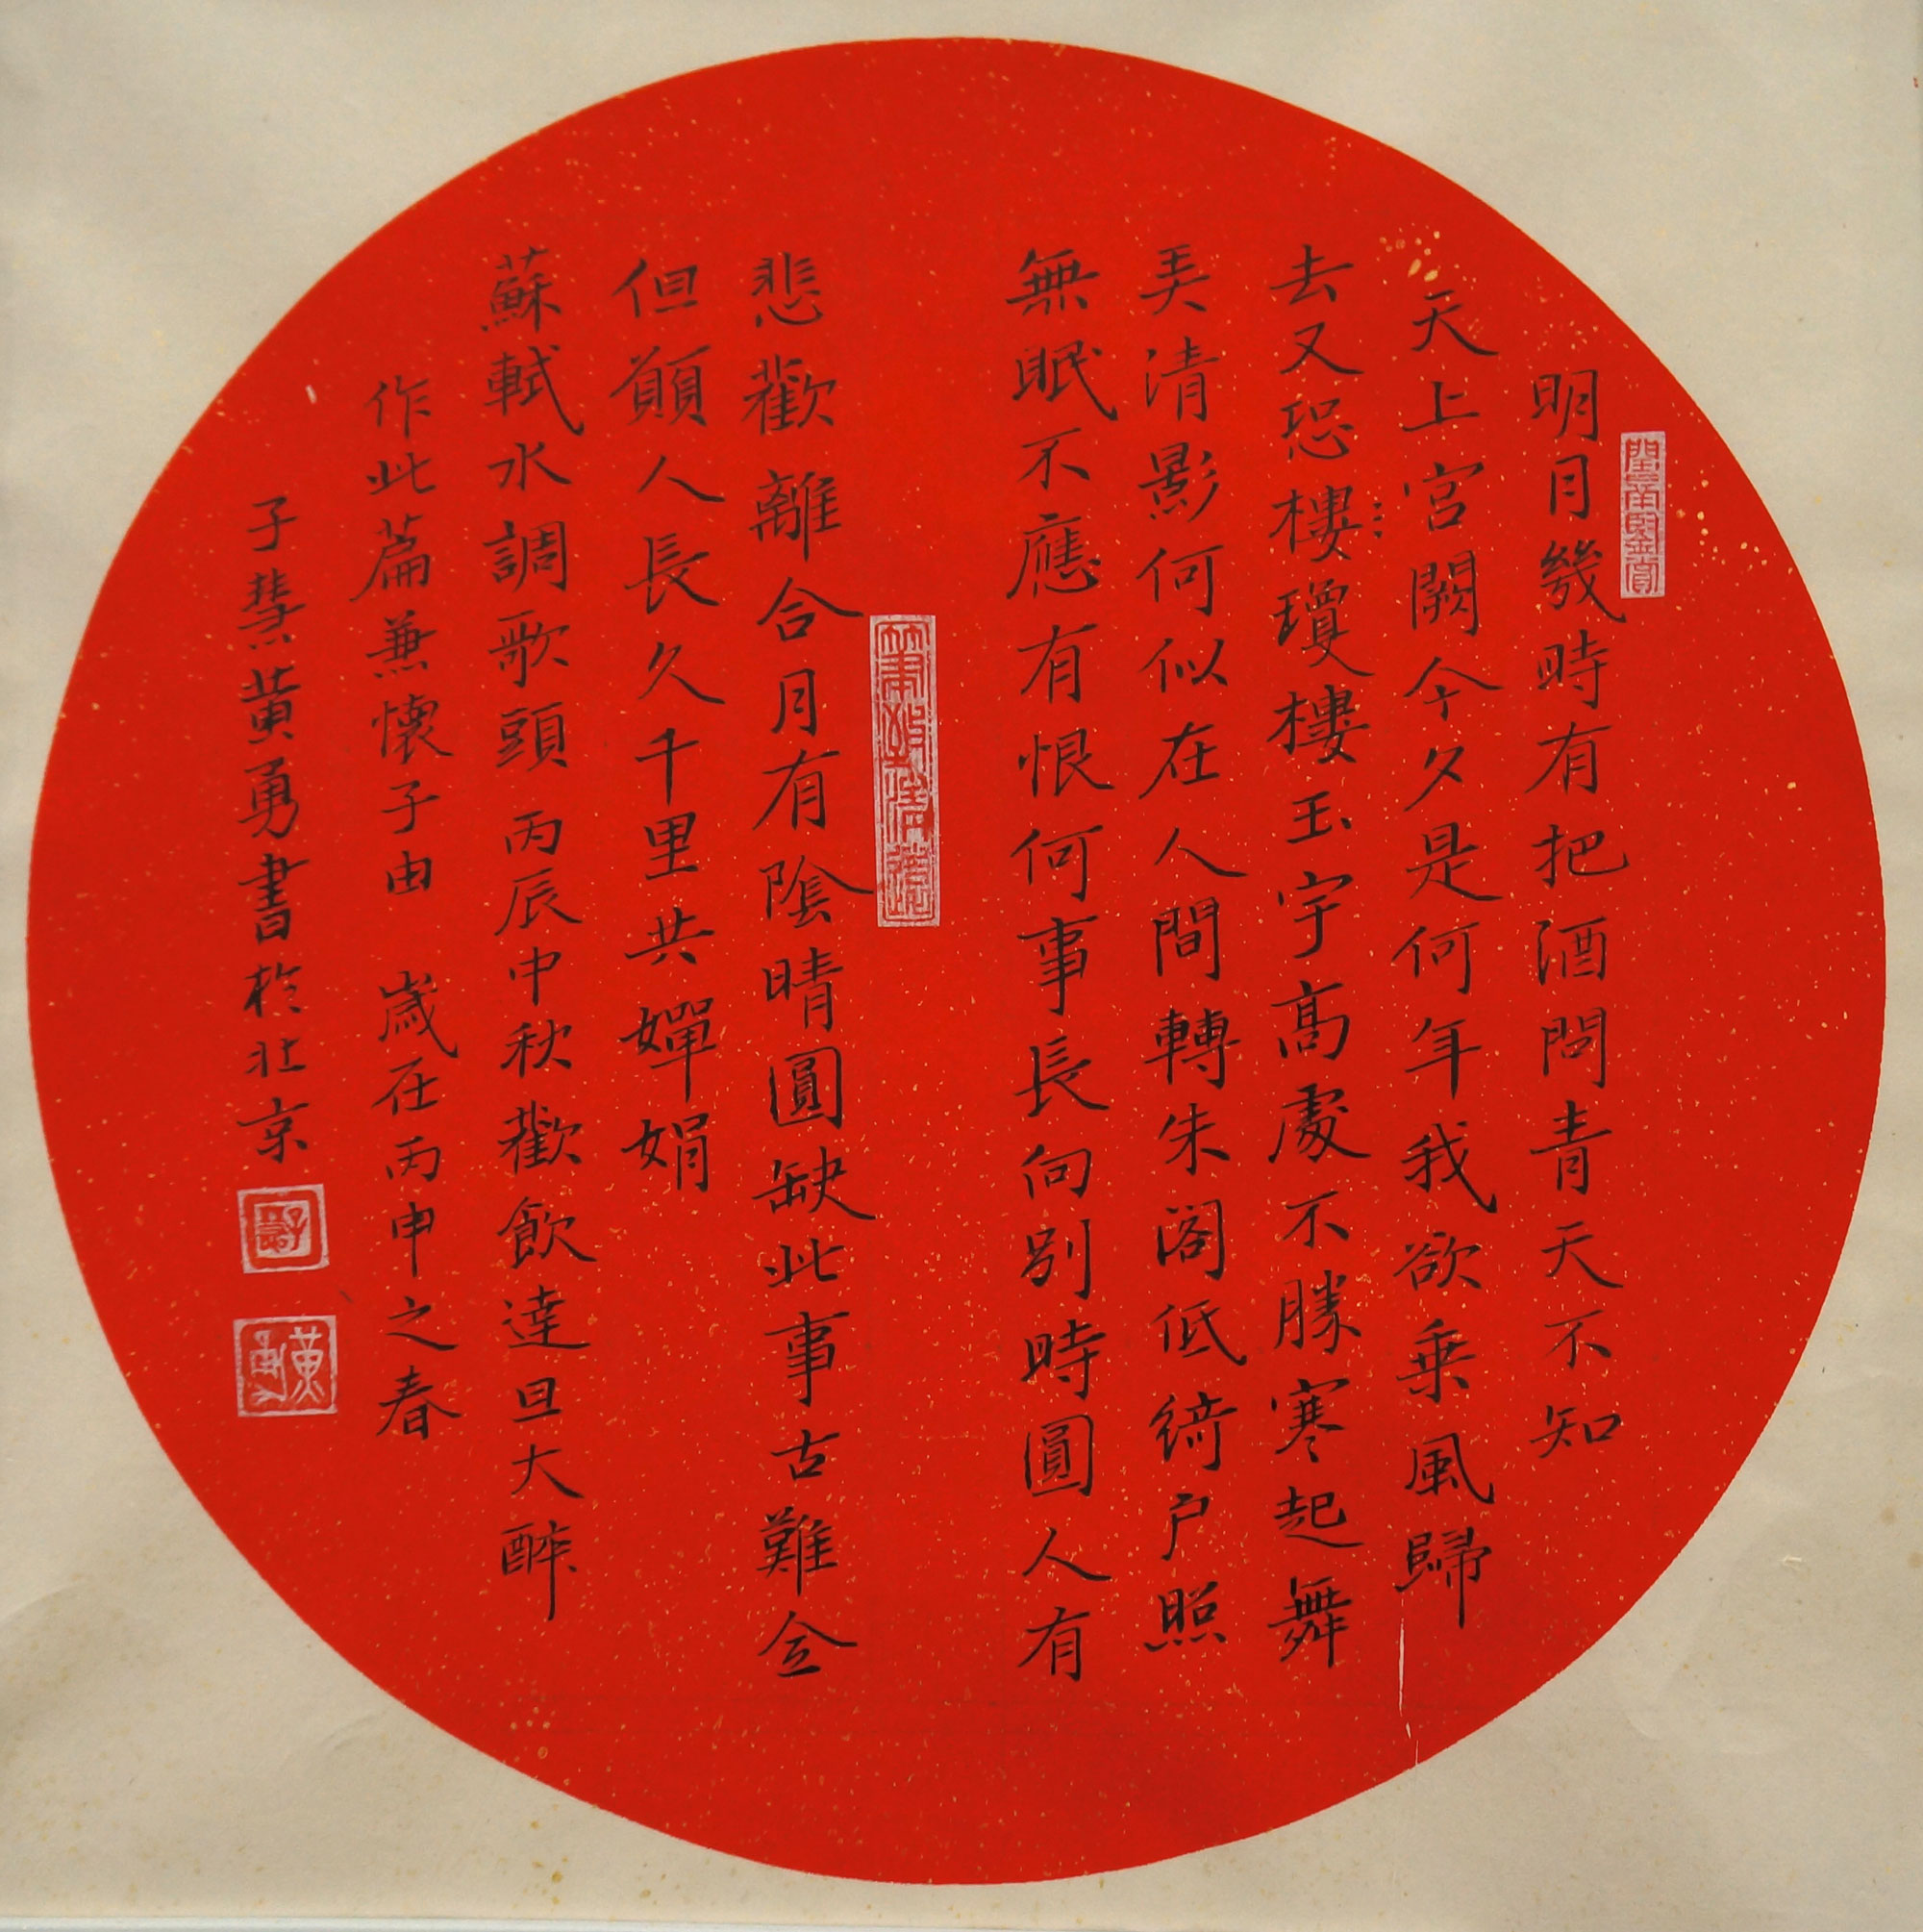 明月幾時有把酒問青天不知
天上宮闕今夕是何年我欲乗風歸
去又恐樓瓊樓玉宇高處不勝寒起舞
弄清影何似在人間轉朱閣低綺户照
無眠不應有恨何事長向別時圓人有
悲歡離合月有陰晴圓缺此事古難全
但願人長久千里共嬋娟
蘇軾水調歌頭 丙辰中秋歡飲達旦大醉
作此篇兼懷子由 歲在丙申之春
子慧黄勇書於北京
黄勇